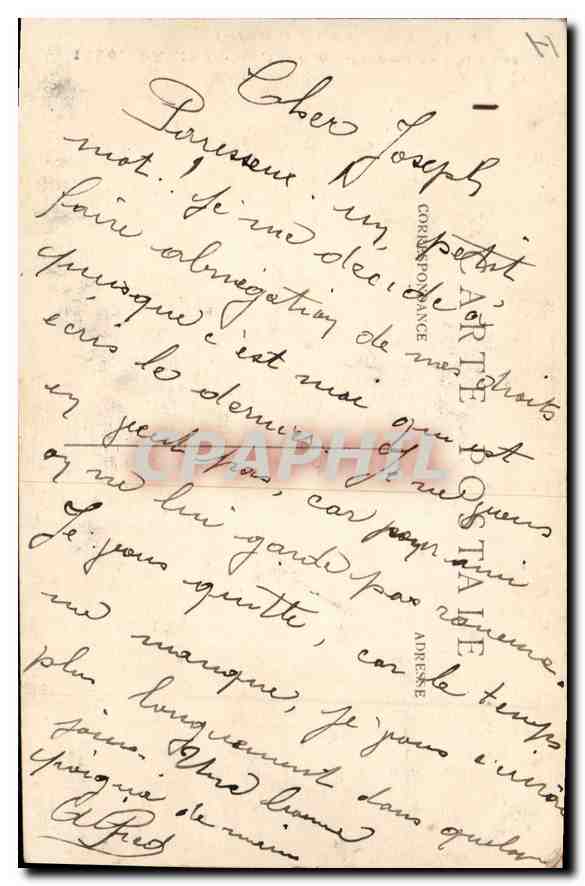 Cher Joseph
Paresseux ! Un petit
mot ! Je me décide à
faire abnégation de mes droits
puisque c'est moi qui est
écris le dernier. Je ne
en veux pas, car
on ne lui garde pas rancune.
Je vous quitte, car le temps
me manque, je vous
plus longuement dans quelques
jours. Une bonne
poignée de mains
Alfred
CARTE POSTALE
CORRESPONDANCE
ADRESSE
CPAPHIL